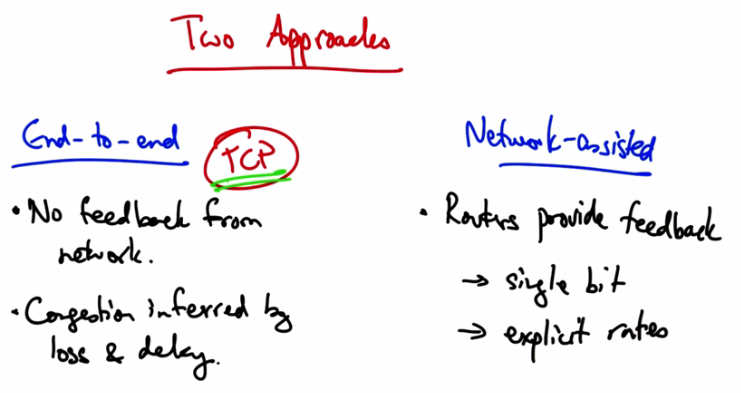 Two Approaches
End-to-end
TCP
• No feedback from
network.
• Congestion inferred by
loss & delay.
Network-assisted
• Routers provide feedback
→ single bit
→ explicit rates